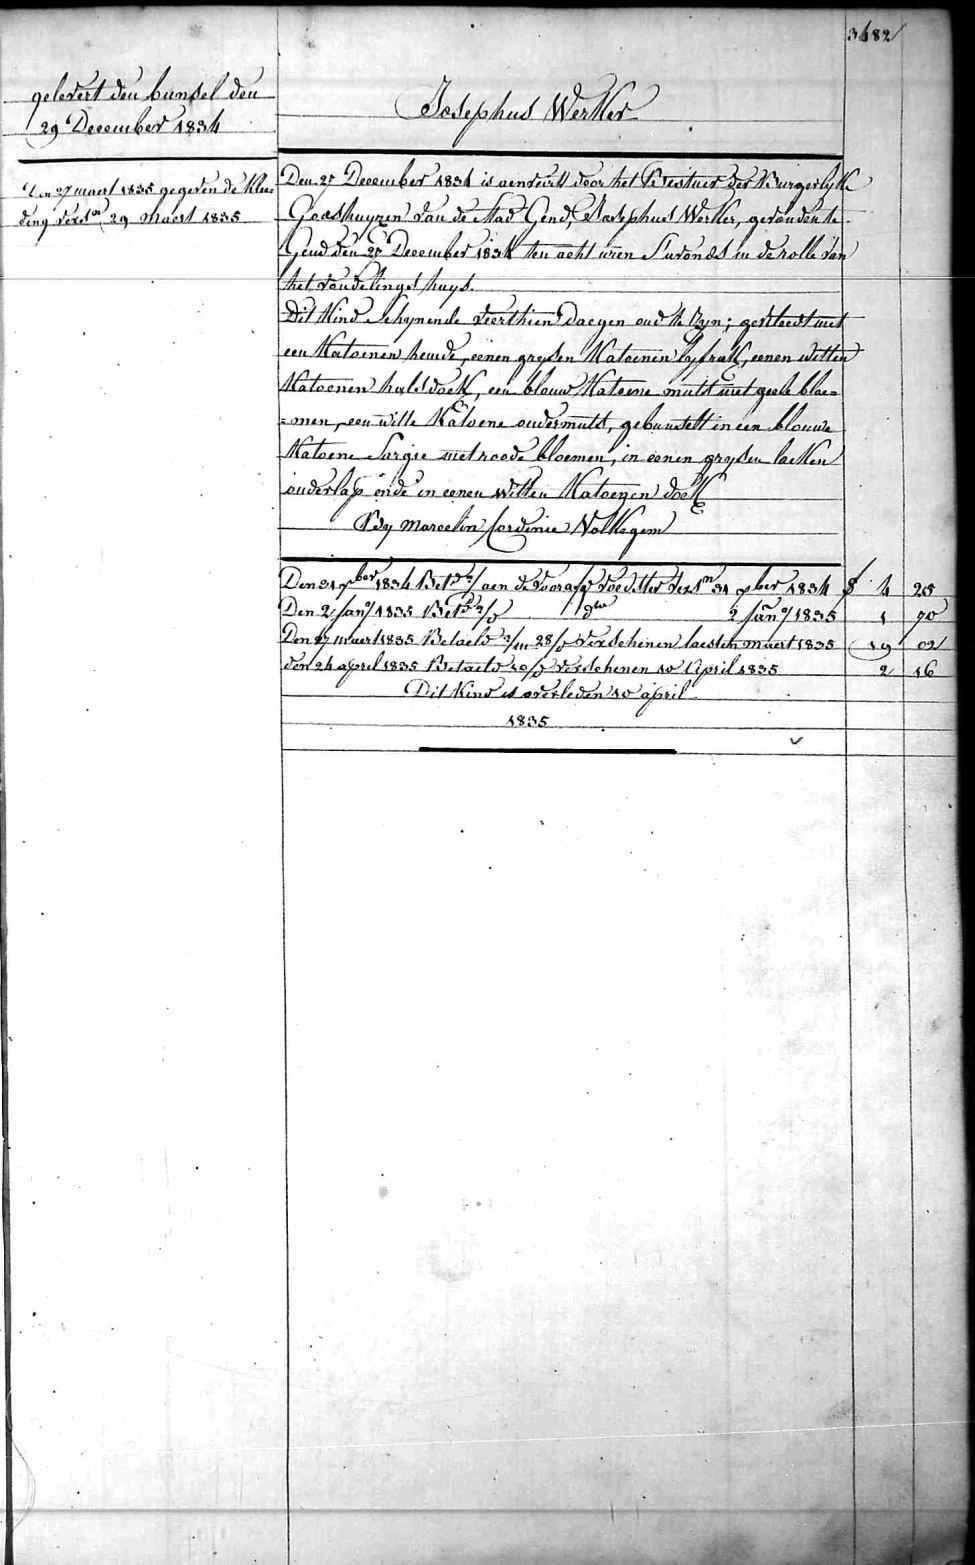 3682
gelevert den bunsel den
29 December 1834
Josephus Werker
Den 27 maert 1835 gegeven de klee
ding versn 29 maert 1835
Den 27 December 1834 is aenveirt door het Bestuer der Burgerlyke
Godshuyzen van de Stad Gend, Josephus Werker, gevonden te
Gend den 27 December 1834 ten acht uren S'avonds in de rolle van
het vondelings huys.
Dit Kind schynende veerthien daegen oud te zyn; gekleed met
een Katoenen hemde, eenen grysen Katoenen lyfrok, eenen witten
Katoenen halsdoek, een blauw Katoene muts met geele bloe=
=men, een witte Katoene ondermuts, gebunselt in een blouwe
Katoene Sargie met roode bloemen, in eenen grysen laeken
onderlap ende in eenen witten Katoenen doek
By Marcelin Cordenie Volkegem
Den 31 xber 1834 Bet aen de voorafg voedster versn 31 xber 1834 f 4 25
Den 2 jany 1835 Bet do 2 jany 1835 1 70
Den 27 maert 1835 Betaeld 2/m 28/d verschenen laesten maert 1835 19 02
den 24 april 1835 Betaeld 10/d verschenen 10 April 1835 2 16
Dit Kind is overleden 10 april
1835